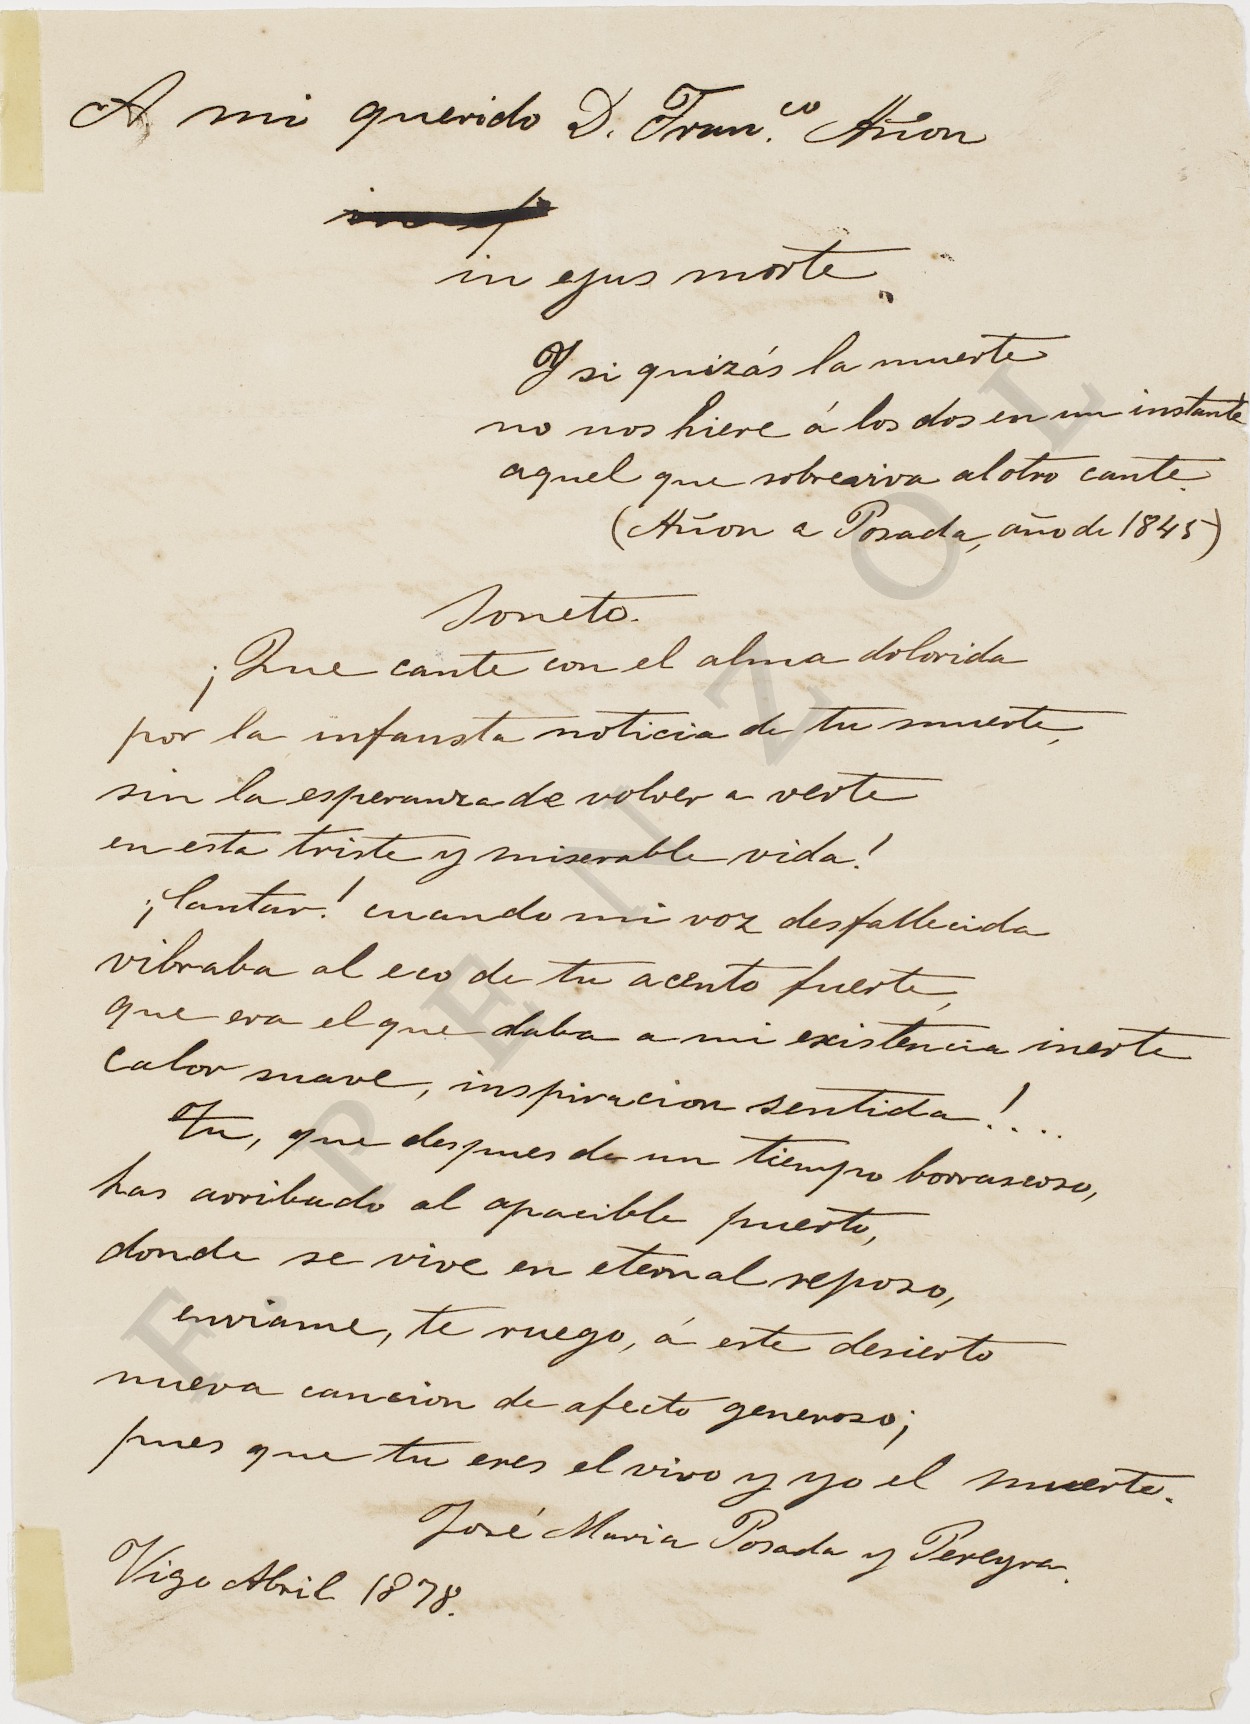 A mi querido D. Fran.co Añon
in ejus morte.
Y si quizás la muerte
no nos hiere á los dos en un instante
aquel que sobreviva al otro cante.
(Añon a Posada, año de 1845)
Soneto.
¡Que cante con el alma dolorida
por la infausta noticia de tu muerte,
sin la esperanza de volver a verte
en esta triste y miserable vida!
¡Cantar! cuando mi voz desfallecida
vibraba al eco de tu acento fuerte,
que era el que daba a mi existencia inerte
calor suave, inspiracion sentida!....
Tu, que despues de un tiempo borrascoso,
has arribado al apacible puerto,
donde se vive en eternal reposo,
enviame, te ruego, á este desierto
nueva cancion de afecto generoso;
pues que tu eres el vivo y yo el muerto.
José Maria Posada y Pereyra.
Vigo Abril 1878.
F. PENZOL